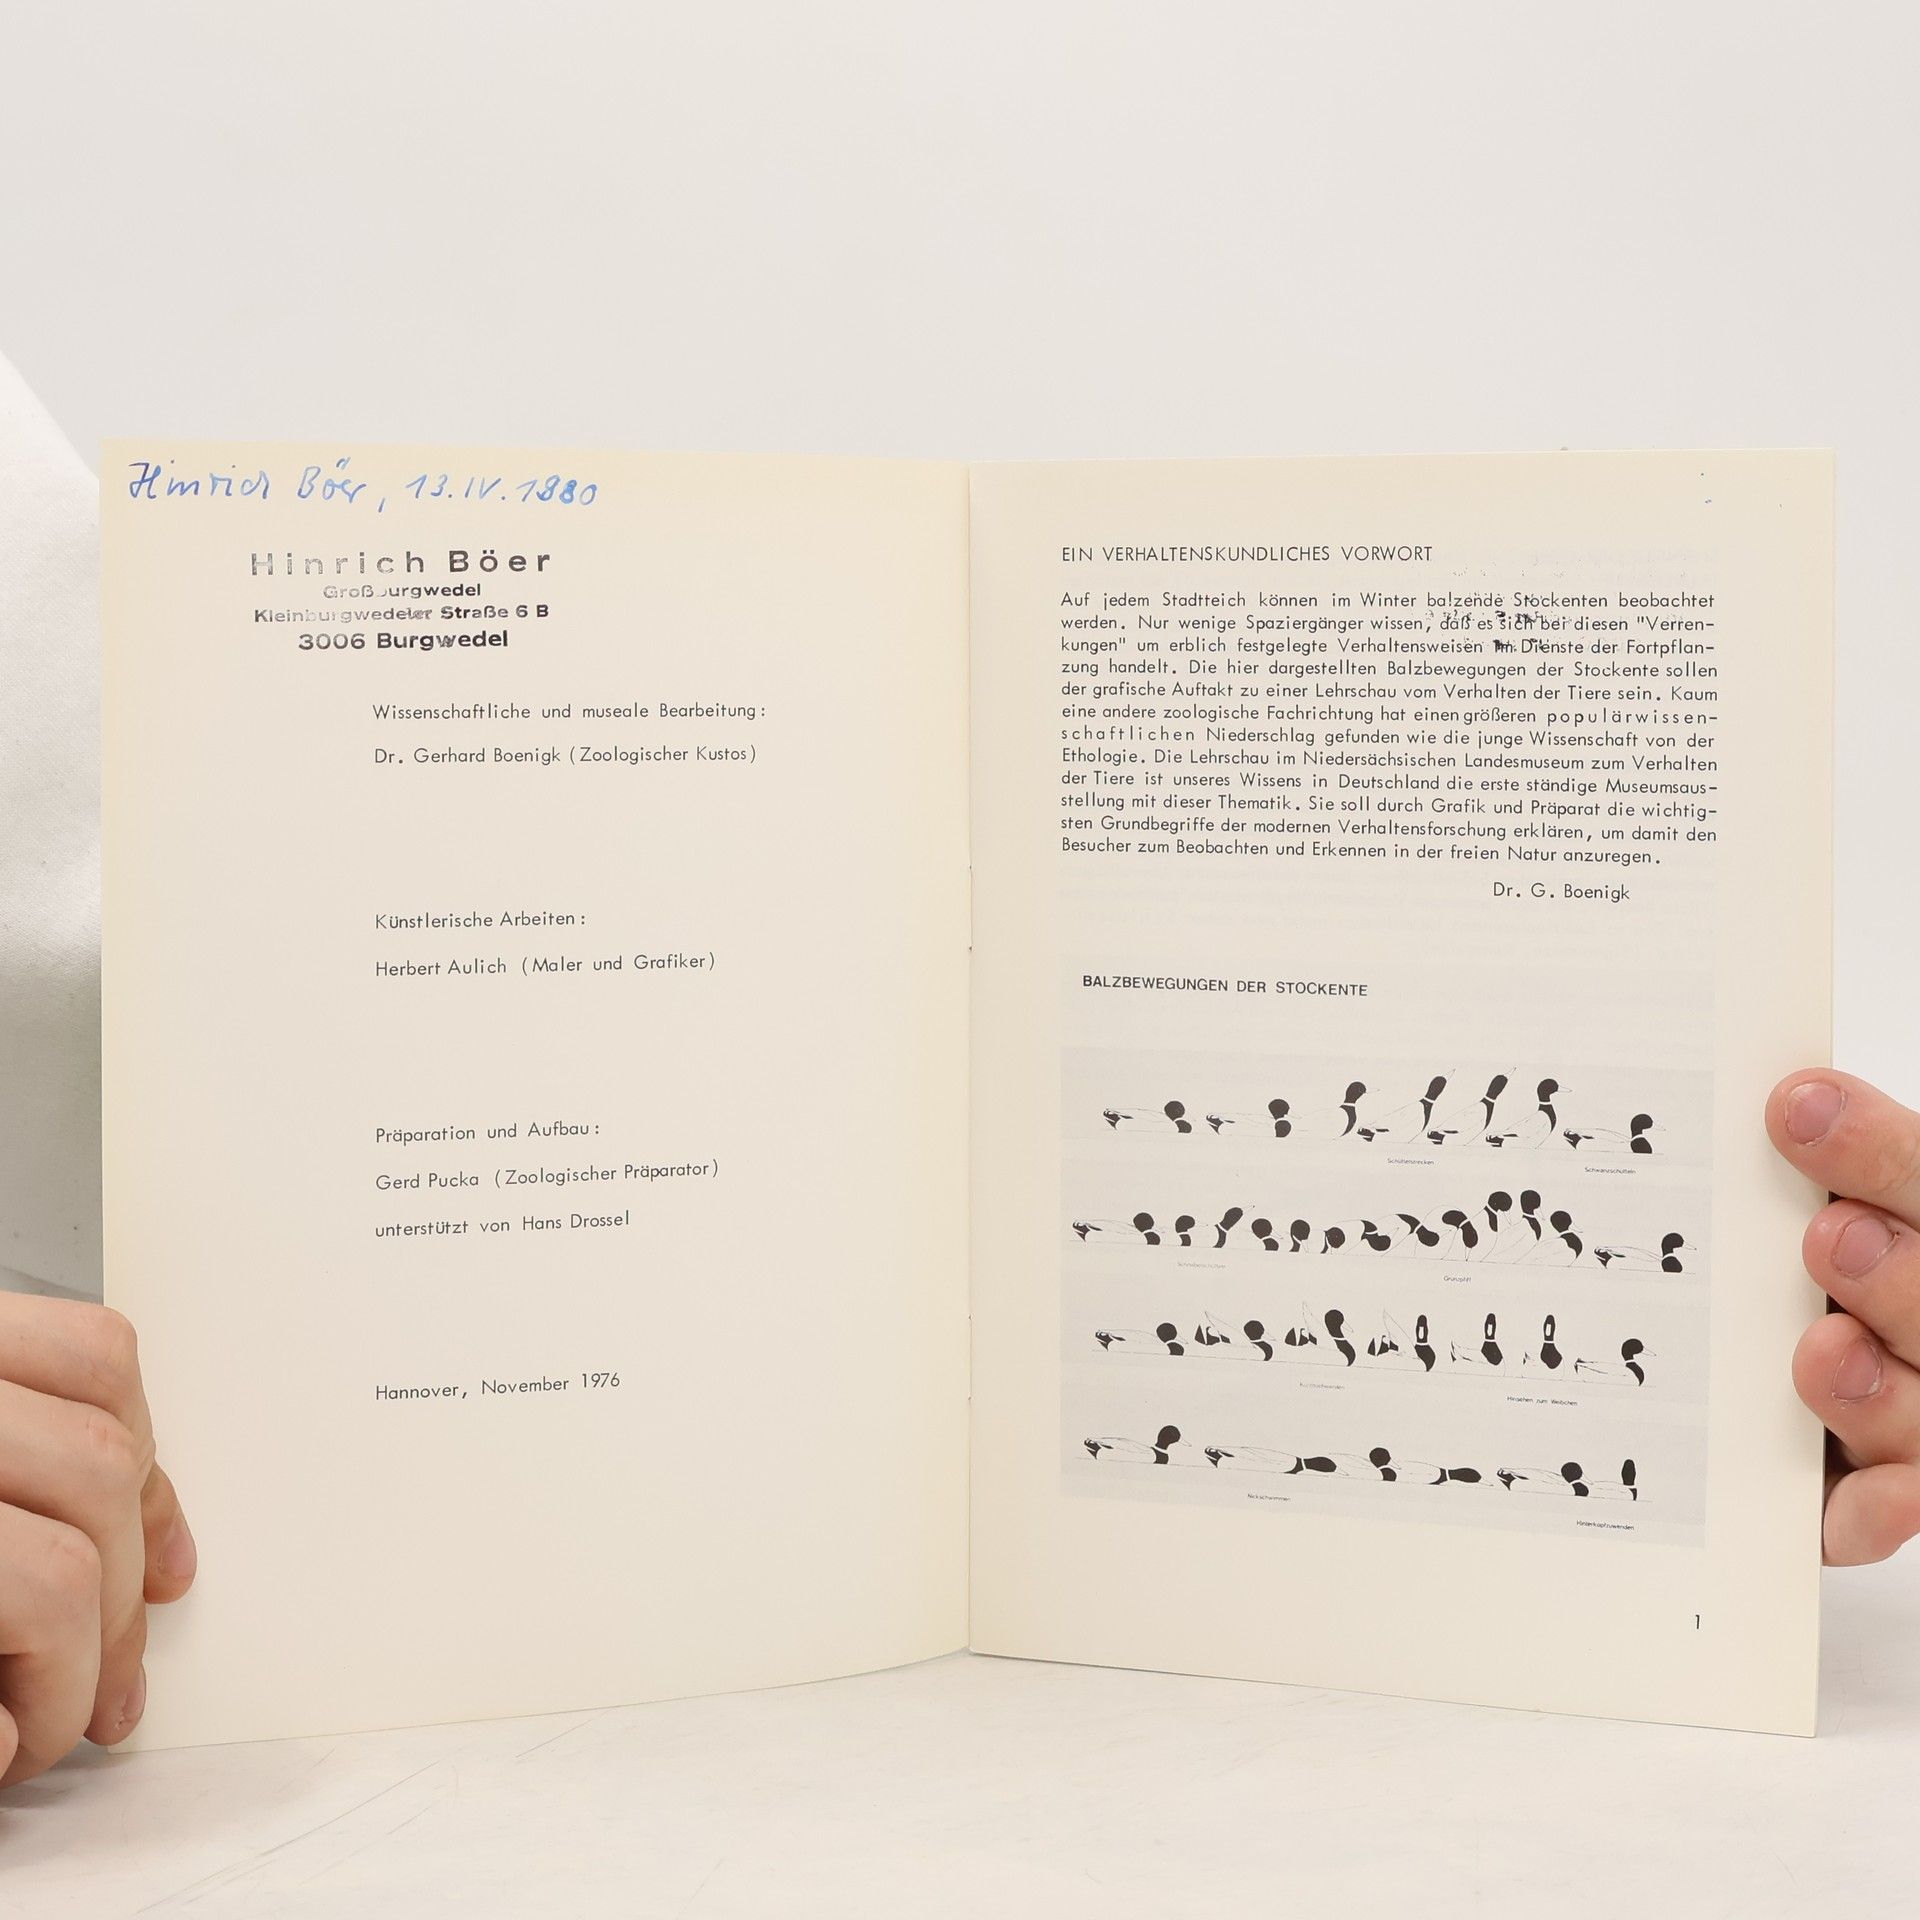 Hinrich Böer, 13.IV.1980
Hinrich Böer
Großburgwedel
Kleinburgwedeler Straße 6 B
3006 Burgwedel
Wissenschaftliche und museale Bearbeitung:
Dr. Gerhard Boenigk (Zoologischer Kustos)
Künstlerische Arbeiten:
Herbert Aulich (Maler und Grafiker)
Präparation und Aufbau:
Gerd Pucka (Zoologischer Präparator)
unterstützt von Hans Drossel
Hannover, November 1976
EIN VERHALTENSKUNDLICHES VORWORT
Auf jedem Stadtteich können im Winter balzende Stockenten beobachtet
werden. Nur wenige Spaziergänger wissen, daß es sich bei diesen "Verren-
kungen" um erblich festgelegte Verhaltensweisen im Dienste der Fortpflan-
zung handelt. Die hier dargestellten Balzbewegungen der Stockente sollen
der grafische Auftakt zu einer Lehrschau vom Verhalten der Tiere sein. Kaum
eine andere zoologische Fachrichtung hat einen größeren populärwissen-
schaftlichen Niederschlag gefunden wie die junge Wissenschaft von der
Ethologie. Die Lehrschau im Niedersächsischen Landesmuseum zum Verhalten
der Tiere ist unseres Wissens in Deutschland die erste ständige Museumsaus-
stellung mit dieser Thematik. Sie soll durch Grafik und Präparat die wichtig-
sten Grundbegriffe der modernen Verhaltensforschung erklären, um damit den
Besucher zum Beobachten und Erkennen in der freien Natur anzuregen.
Dr. G. Boenigk
BALZBEWEGUNGEN DER STOCKENTE
Schüttelstrecken
Schwanzschütteln
Grunzpfiff
Hinsehen zum Weibchen
Nickschwimmen
Hinterkopfzuwenden
1